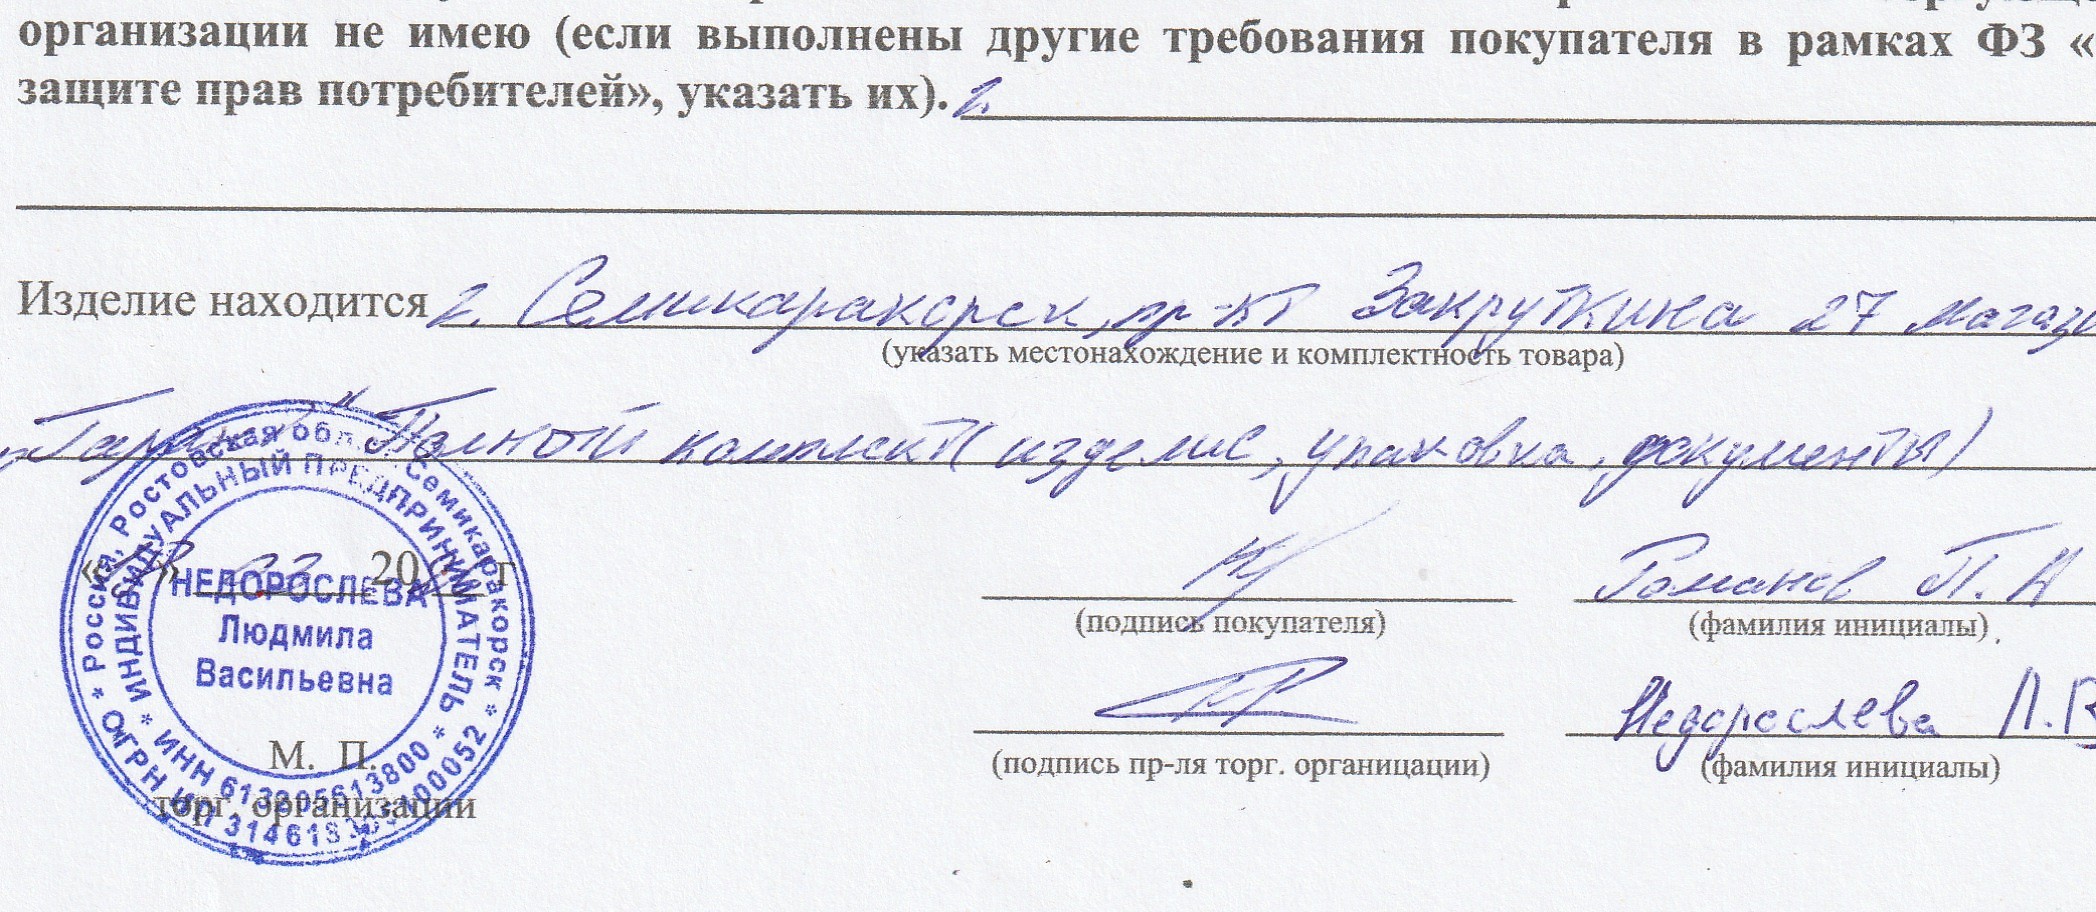 организации не имею (если выполнены другие требования покупателя в рамках ФЗ «
защите прав потребителей», указать их). г.
Изделие находится г. Семикаракорск, пр-кт Закруткина 27 магази
(указать местонахождение и комплектность товара)
Полный комплект (изделие, упаковка, документы)
« » 03 20 г
(подпись покупателя)
Романов П. Н
(фамилия инициалы)
(подпись пр-ля торг. органицации)
Недорослева Л.В
(фамилия инициалы)
М. П.
торг. организации
* Россия, Ростовская обл., г. Семикаракорск *
ОГРН ИП
* ИНДИВИДУАЛЬНЫЙ ПРЕДПРИНИМАТЕЛЬ *
ИНН 613205613800
НЕДОРОСЛЕВА
Людмила
Васильевна